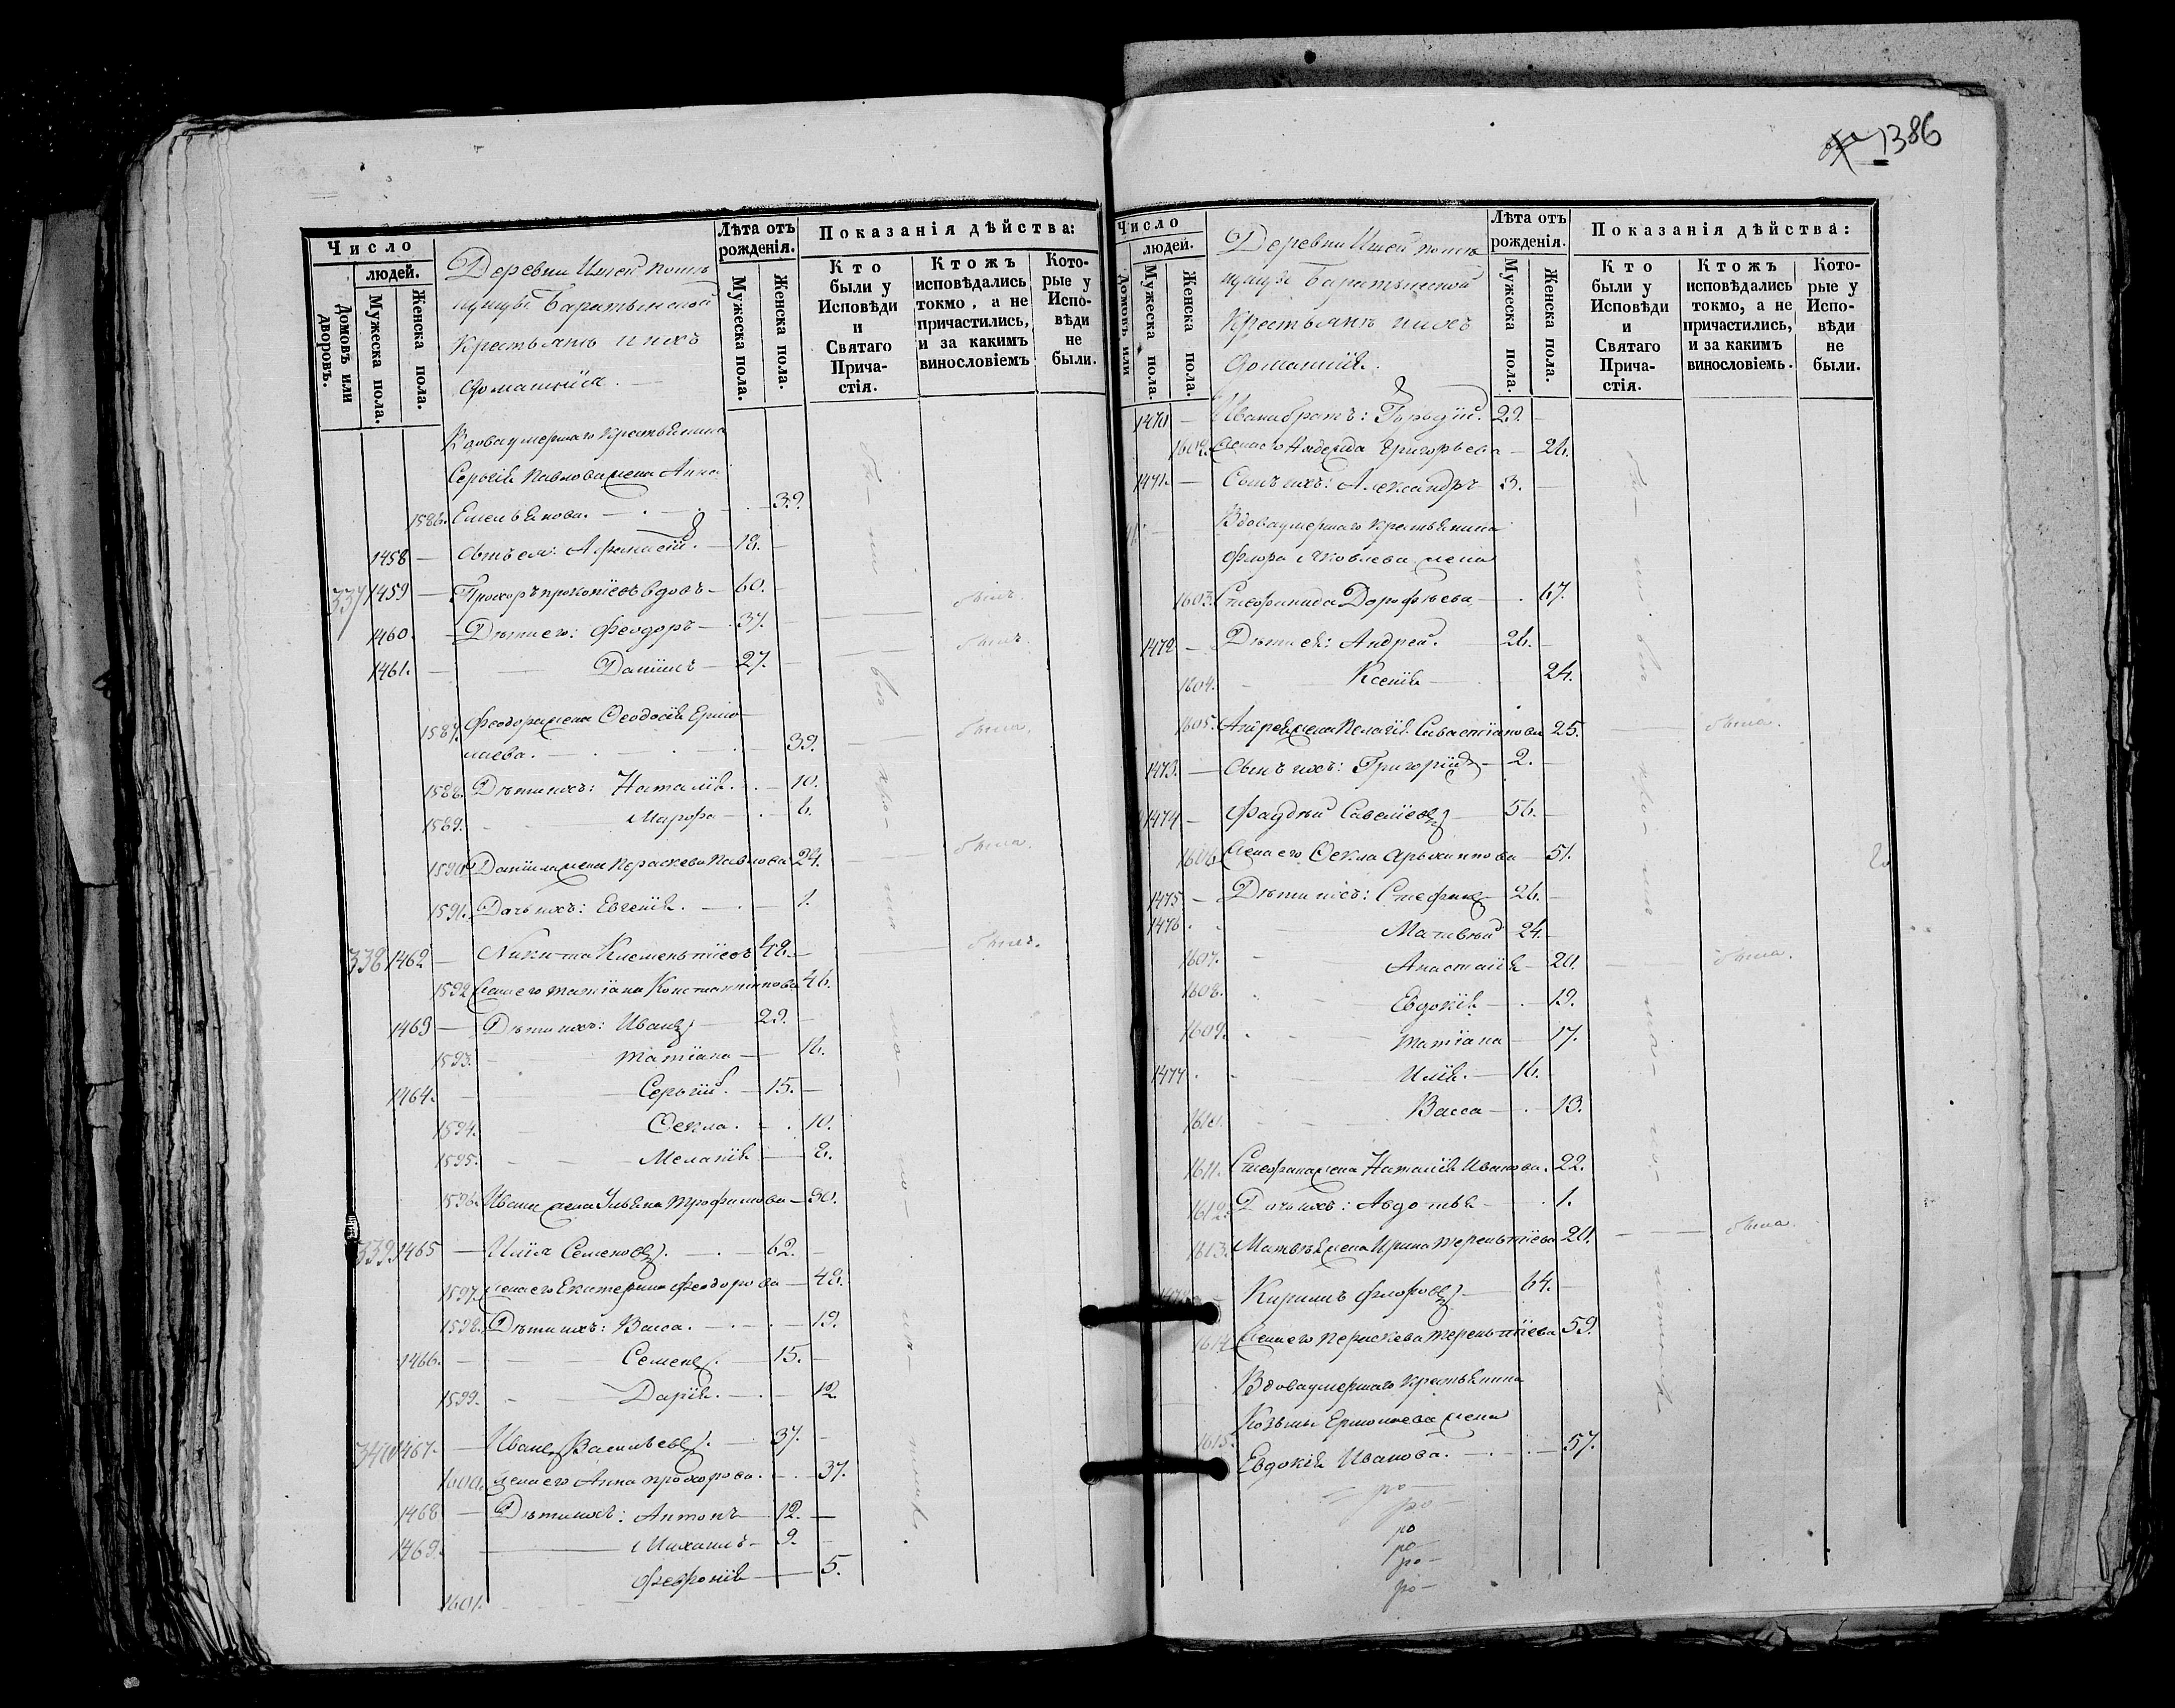 1386
Число
людей.
Домовъ или дворовъ.
Мужеска пола.
Женска пола.
Деревни помѣ
щицы Баратынской
Крестьянъ и ихъ
домашнія.
Лѣта отъ рожденія.
Мужеска пола.
Женска пола.
Показанія дѣйства:
Кто были у Исповѣди и Святаго Прича-стія.
Ктожъ исповѣдались токмо, а не причастились, и за какимъ винословіемъ
Кото-рые у Испо-вѣди не были.
Вдова умершаго крестьянина
Сергія Павлова жена Анна
1586. Емельянова. 39.
1458 Сынъ ея: Афанасій. 18.
337 1459 Прохоръ Прокопіевъ вдовъ 60. былъ.
1460. Дѣти его: Феодоръ 37. былъ.
1461. Даніилъ 27.
1587. Феодора жена Феодосія Ермо
лаева. 39. была.
1588. Дѣти ихъ: Наталія. 10.
1589. Марфа 6.
1590. Даніила жена Параскева Павлова 24. была.
1591. Дочь ихъ: Евгенія. 1.
338 1462 Никита Клементіевъ 48. былъ.
1592 Жена его Татіана Константинова 46.
1463 Дѣти ихъ: Иванъ 29.
1593. Татіана 16.
1464. Сергій. 15.
1594. Фекла. 10.
1595. Меланія 8.
1596. Ивана жена Ульяна Трофимова 30.
339 1465 Илія Семеновъ. 62.
1597. Жена его Екатерина Феодорова 48.
1598. Дѣти ихъ: Васса. 19.
1466. Семенъ. 15.
1599. Дарія. 12
340 1467. Иванъ Васильевъ. 37.
1600. Жена его Анна Прохорова. 37.
1468 Дѣти ихъ: Антонъ 12.
1469. Михаилъ 9.
1601. Февронія 5.
Число
людей.
Домовъ или
Мужеска пола.
Женска пола.
Деревни помѣ
щицы Баратынской
Крестьянъ и ихъ
домашнія.
Лѣта отъ рожденія.
Мужеска пола.
Женска пола.
Показанія дѣйства:
Кто были у Исповѣди и Святаго Прича-стія.
Ктожъ исповѣдались токмо, а не причастились, и за какимъ винословіемъ.
Кото-рые у Испо-вѣди не были.
1470 Ивана братъ: Гурьдій. 29.
1602. Жена его Надежда Григорьева 26.
1471. Сынъ ихъ: Александръ 3.
Вдова умершаго крестьянина
Флора Яковлева жена
1603. Стефанида Дорофѣева 67.
1472 Дѣти ея: Андрей. 26.
1604. Ксенія 24.
1605. Андрея жена Пелагія Савастіанова 25. была.
1473. Сынъ ихъ: Григорій 2.
1474 Фаддей Савеліевъ 56.
1606. Жена его Фекла Архиппова 51.
1475 Дѣти ихъ: Стефанъ 26.
1476 Матвѣй 24.
1607. Анастасія 20. была.
1608. Евдокія 19.
1609. Татіана 17.
1477 Илія. 16.
1610. Васса 13.
1611. Стефана жена Наталія Иванова. 22.
1612. Дочь ихъ: Авдотья 1.
1613. Матвѣя жена Ирина Терентіева 20. была.
1478 Кирилъ Флоровъ 64.
1614 Жена его Параскева Терентіева 59.
Вдова умершаго крестьянина
Козьмы Ермолаева жена
1615. Евдокія Иванова. 57.